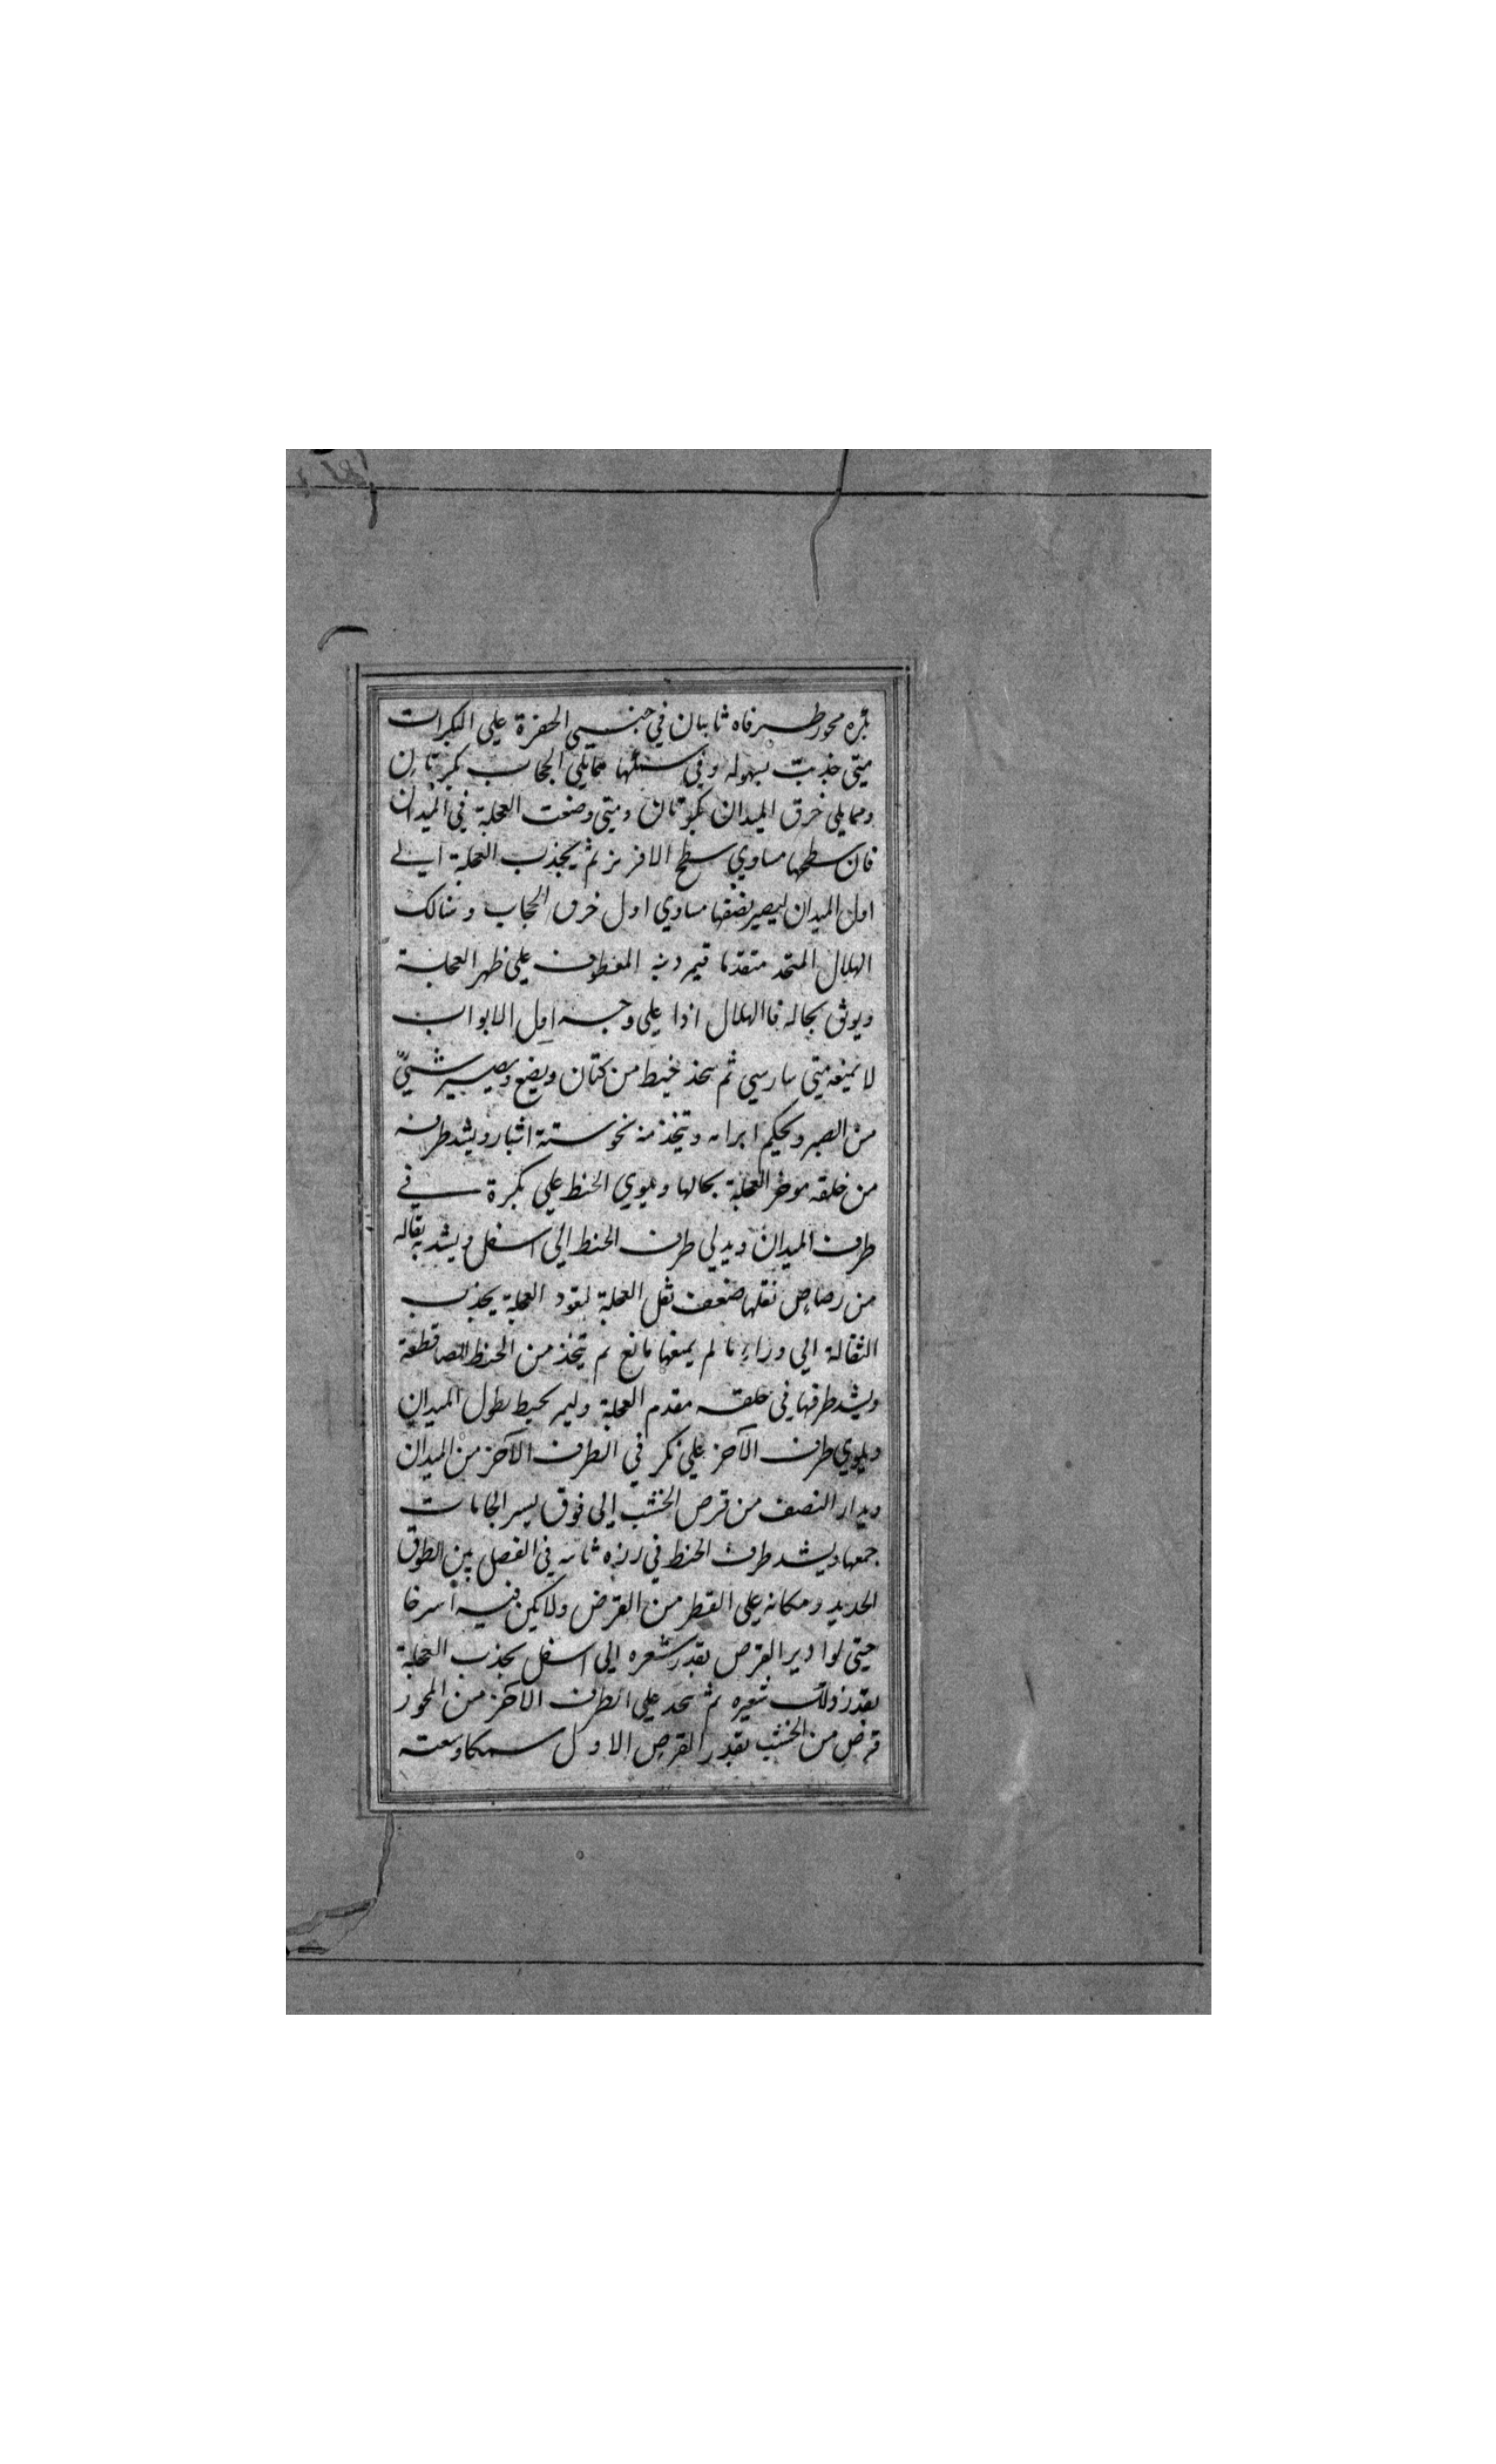 بكره محور طرفاه ثابتان في جنبتي الحفرة علي البكرات
متي جذبت بسهوله وفي سفلها ممايلي الحجاب بكرتان
وممايلي خرق الميدان بكرتان ومتي وضعت العجلة في الميدان
فان سطحها مساوي سطح الافريز ثم يجذب العجلة الي
اول الميدان ليصير نصفها مساوي اول خرق الحجاب وهنالك
الهلال المتخذ متقدما فيمر ذنبه المعطوف علي ظهر العجلة
ويوثق بحاله فاالهلال اذا علي وجه اول الابواب
لا يمنعه متي سار سيي ثم يتخذ خيط من كتان ويضع ويصير شيئ
من الصبر ويحكم ابرامه ويتخذ منه نحو ستة اشبار ويشد طرفه
من خلقه موخر العجلة بحالها ويلوي الخيط علي بكرة في
طرف الميدان ويدلي طرف الخيط الي اسفل ويشد به ثقاله
من رصاص ثقلها ضعف ثقل العجلة لتعود العجلة بجذب
الثقالة الي وراء ما لم يمنعها مانع ثم يتخذ من الخيط ايضا قطعة
ويشد طرفها في حلقه مقدم العجلة وليمر الخيط بطول الميدان
ويلوي طرف الآخر علي بكر في الطرف الآخر من الميدان
ويدار النصف من قرص الخشب الي فوق ليسر الجامات
جمعها ويشد طرف الخيط في رزه ثابته في الفصل بين الطوق
الحديد ومكانه علي القطر من القرص ولا يكن فيه استرخا
حتي لو ادير القرص بقدر شعره الي اسفل بجذب العجلة
بقدر ذلك شعيره ثم يتخذ علي الطرف الآخر من المحور
قرص من الخشب بقدر القرص الاول سمكا وسعته